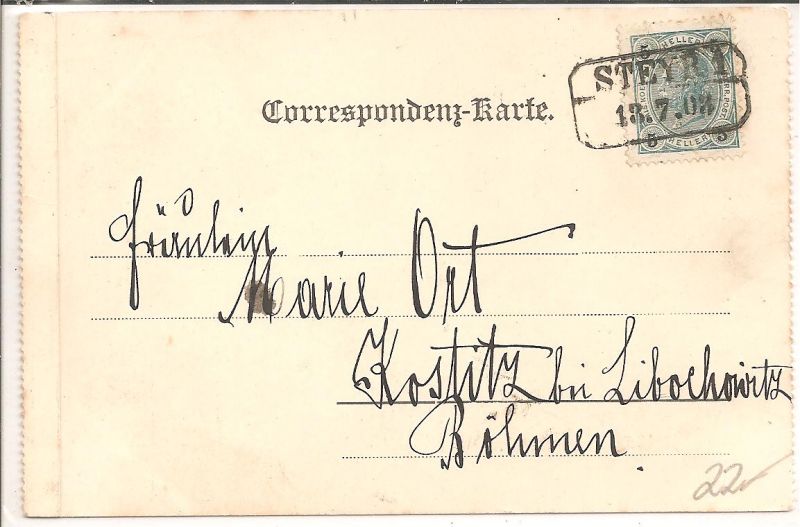 Correspondenz-Karte.
STEYR 1
13.7.03
5 HELLER 5
5 HELLER 5
Fräulein
Marie Ort
Kostitz bei Libochowitz
Böhmen
22